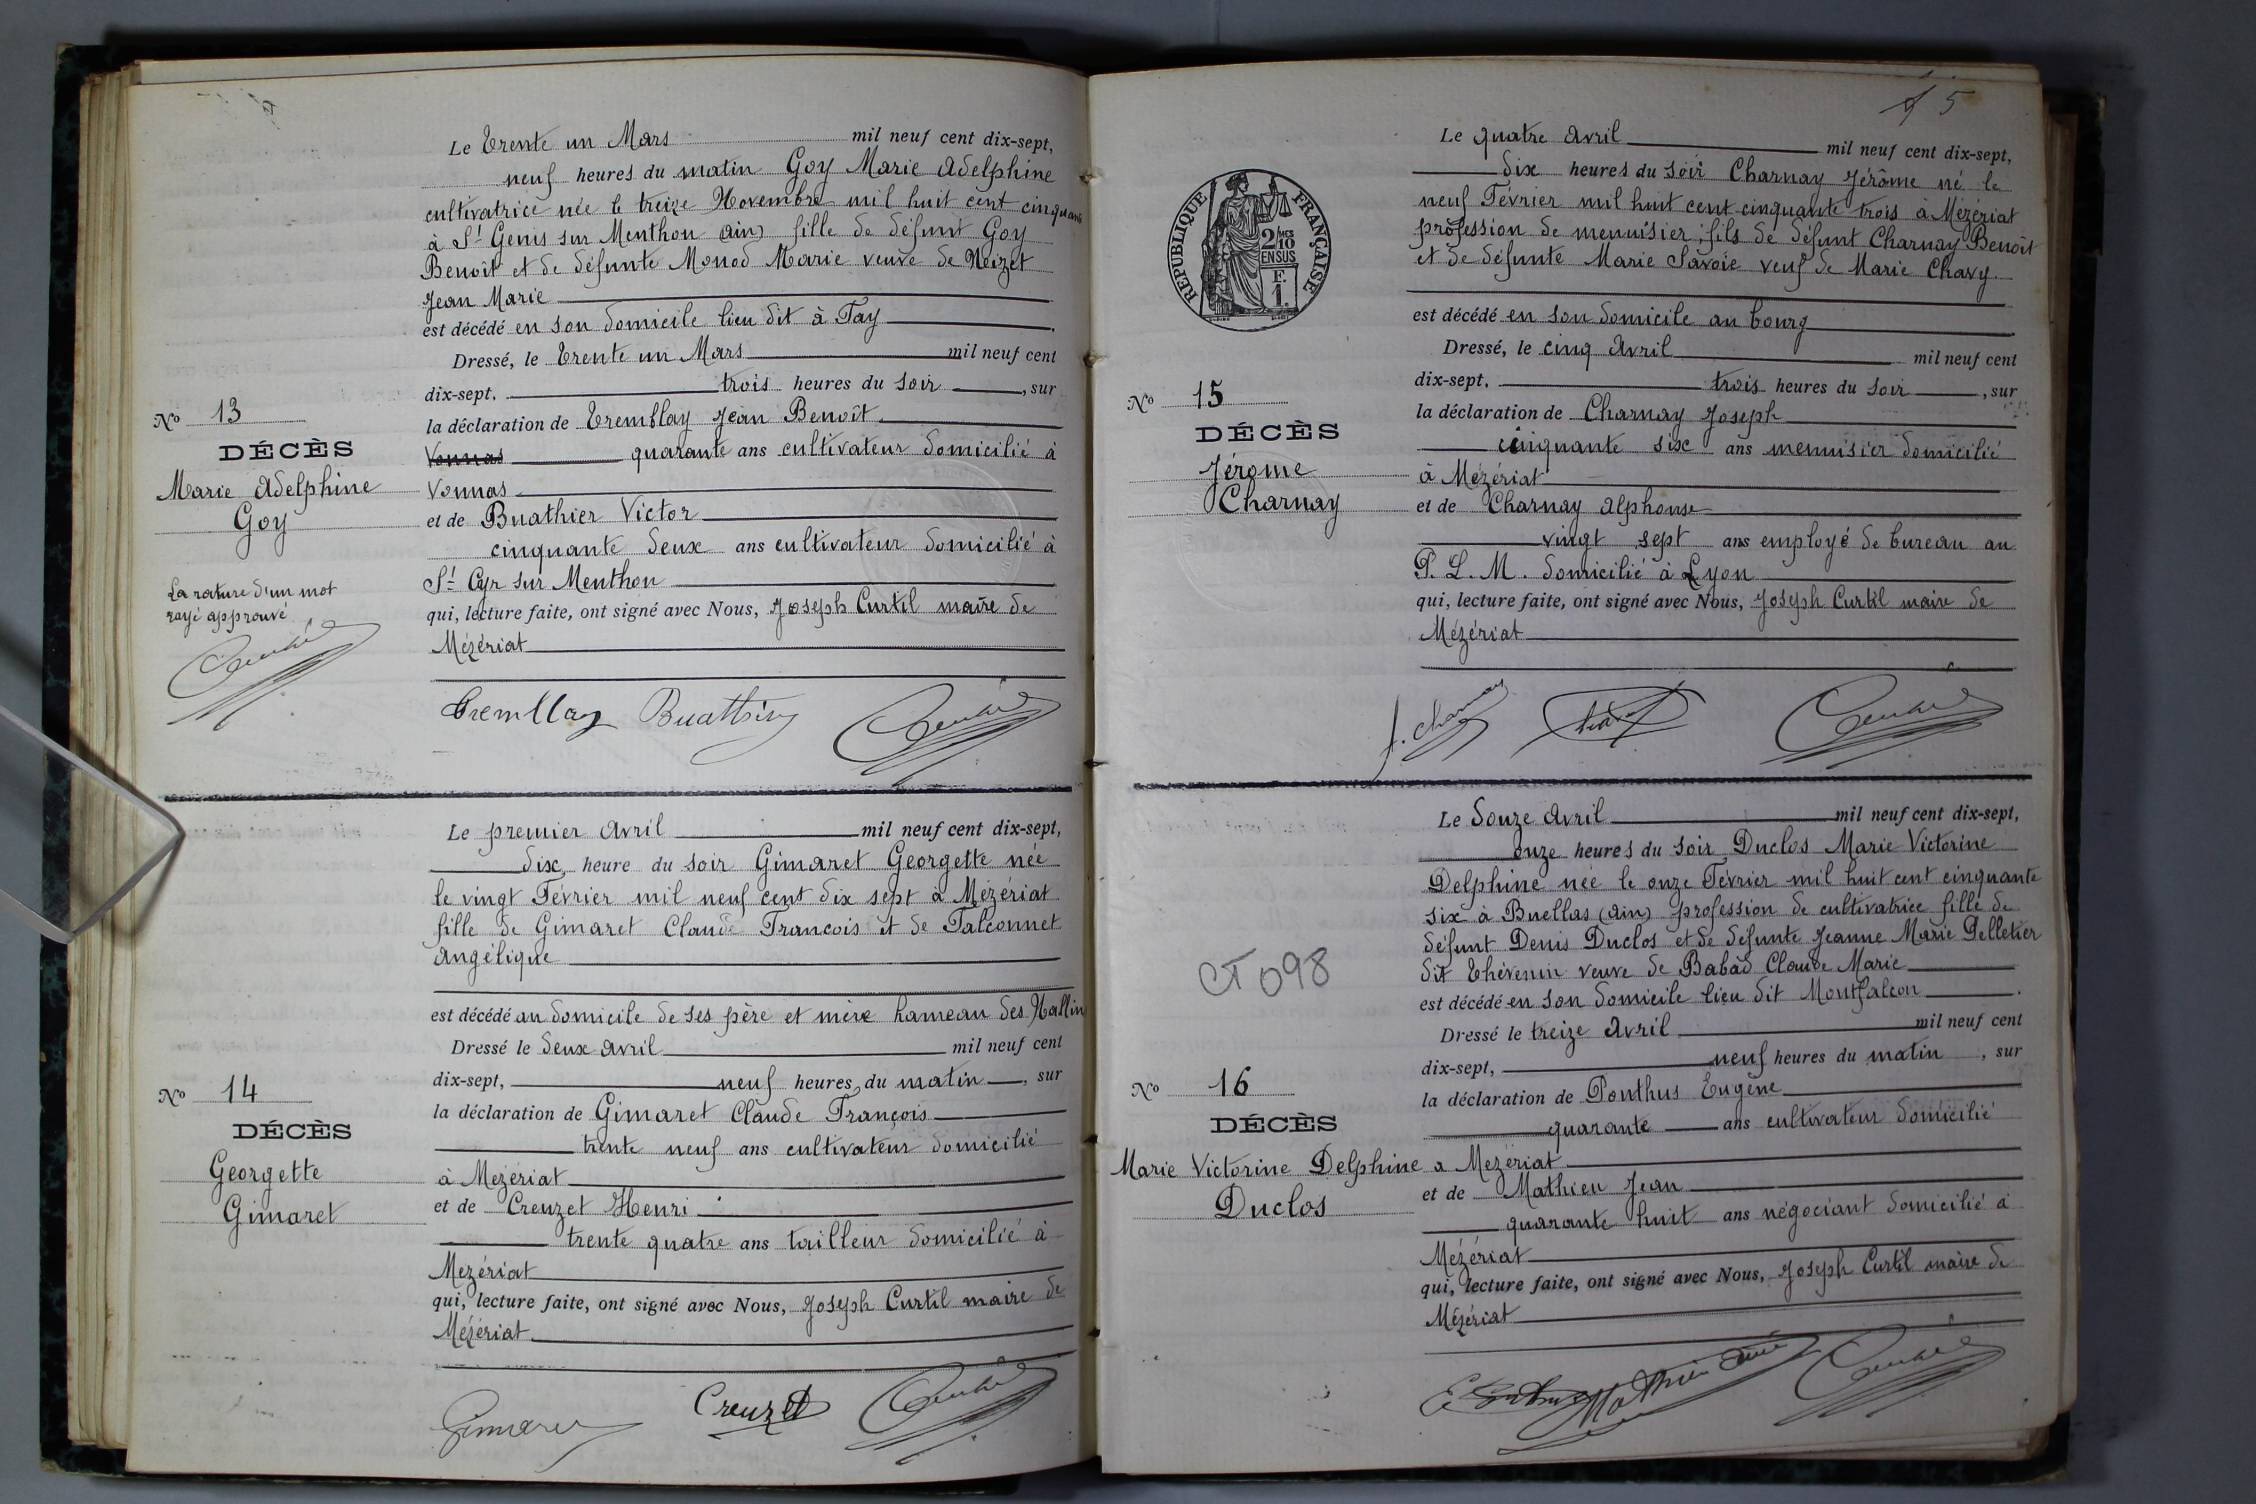 Le trente un Mars mil neuf cent dix-sept,
neuf heures du matin Goy Marie Adelphine
cultivatrice née le treize Novembre mil huit cent cinquante
à St Genis sur Menthon (Ain) fille de défunt Goy
Benoît et de défunte Monod Marie veuve de Neizet
Jean Marie
est décédé en son domicile lieu dit à Tay
Dressé, le trente un Mars mil neuf cent
dix-sept. trois heures du soir, sur
la déclaration de Tremblay Jean Benoît
Vonnas quarante ans cultivateur domicilié à
Vonnas
et de Buathier Victor
cinquante deux ans cultivateur domicilié à
St Cyr sur Menthon
qui, lecture faite, ont signé avec Nous, Joseph Curtil maire de
Mézériat
No 13
DÉCÈS
Marie Adelphine
Goy
La rature d'un mot
rayé approuvé
Tremblay Buathier
Le premier Avril mil neuf cent dix-sept,
dix heure du soir Gimaret Georgette née
le vingt Février mil neuf cent dix sept à Mézériat
fille de Gimaret Claude François et de Falconnet
Angélique
est décédé au domicile de ses père et mère hameau des
Dressé le deux Avril mil neuf cent
dix-sept, neuf heures du matin, sur
la déclaration de Gimaret Claude François
trente neuf ans cultivateur domicilié
à Mézériat
et de Creuzet Henri
trente quatre ans tailleur domicilié à
Mézériat
qui, lecture faite, ont signé avec Nous, Joseph Curtil maire de
Mézériat
No 14
DÉCÈS
Georgette
Gimaret
Gimaret Creuzet
5
RÉPUBLIQUE FRANÇAISE
2/10 MES
EN SUS
F.
1.
Le quatre Avril mil neuf cent dix-sept,
dix heures du soir Charnay Jérôme né le
neuf Février mil huit cent cinquante trois à Mézériat
profession de menuisier, fils de défunt Charnay Benoît
et de défunte Marie Savoie veuf de Marie Chavy.
est décédé en son domicile au bourg
Dressé, le cinq Avril mil neuf cent
dix-sept. trois heures du soir, sur
la déclaration de Charnay Joseph
cinquante six ans menuisier domicilié
à Mézériat
et de Charnay Alphonse
vingt sept ans employé de bureau au
P. L. M. domicilié à Lyon
qui, lecture faite, ont signé avec Nous, Joseph Curtil maire de
Mézériat
No 15
DÉCÈS
Jérome
Charnay
J. Charnay
Le douze Avril mil neuf cent dix-sept,
onze heures du soir Duclos Marie Victorine
Delphine née le onze Février mil huit cent cinquante
six à Buellas (Ain) profession de cultivatrice fille de
défunt Denis Duclos et de défunte Jeanne Marie Pelletier
dit Thévenin veuve de Babad Claude Marie
est décédé en son domicile lieu dit Montfalcon
Dressé le treize Avril mil neuf cent
dix-sept, neuf heures du matin, sur
la déclaration de Ponthus Eugène
quarante ans cultivateur domicilié
a Mézériat
et de Mathieu Jean
quarante huit ans négociant domicilié à
Mézériat
qui, lecture faite, ont signé avec Nous, Joseph Curtil maire de
Mézériat
CT 098
No 16
DÉCÈS
Marie Victorine Delphine
Duclos
Mathieu